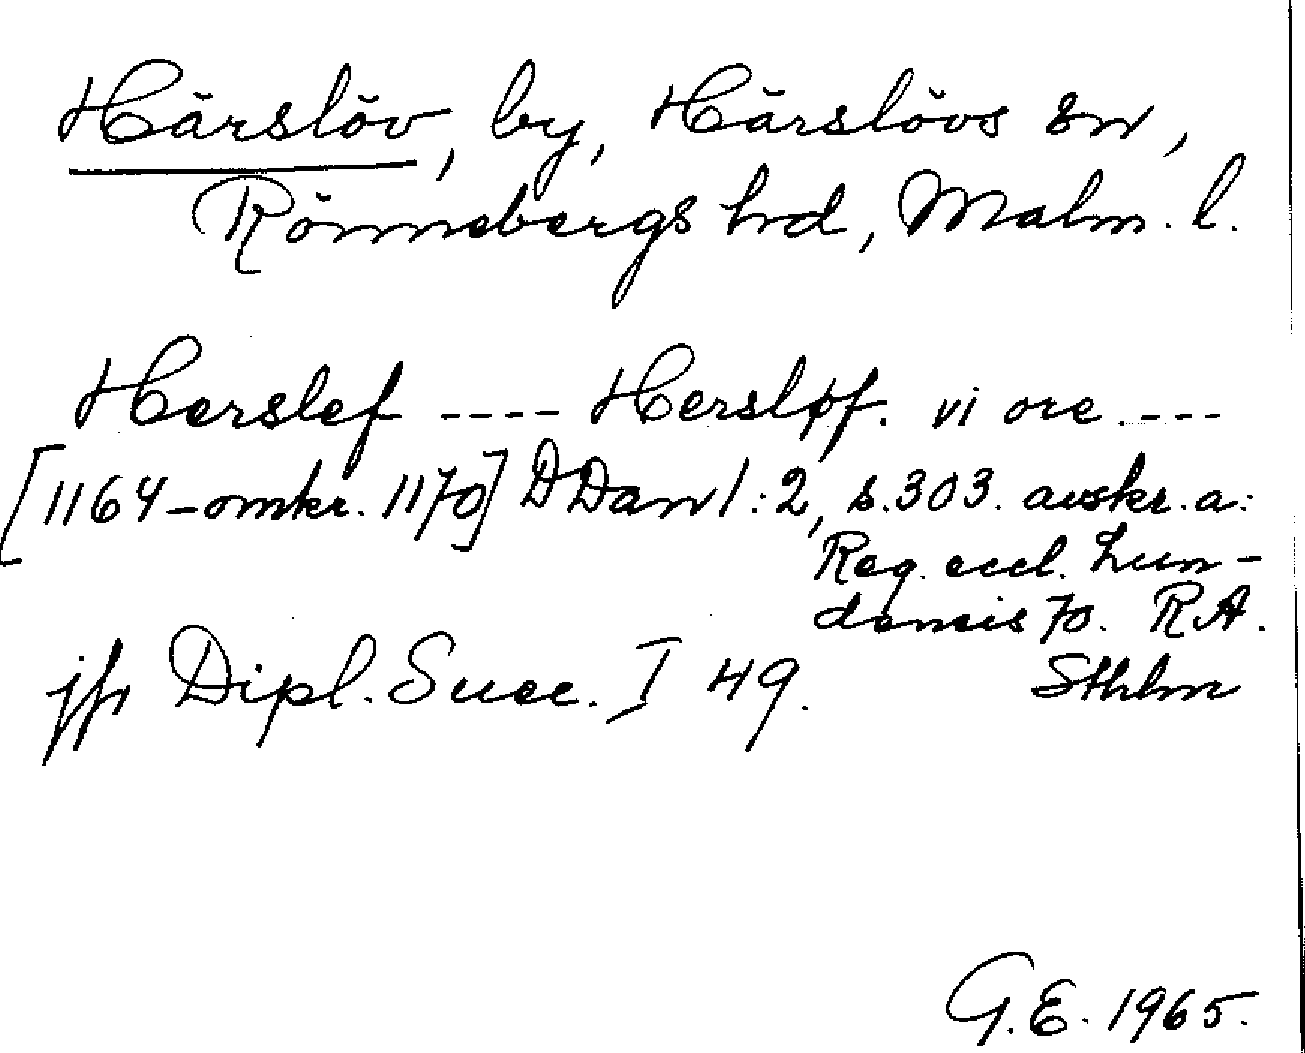 Härslöv, by, Härslövs sn,
Rönnebergs hrd, Malm. l.
Herslef ---- Hersløf. vi ore. ---
[1164-omkr. 1170] DDan 1:2, s. 303. avskr. a:
Reg. eccl. Lun-
densis 70. RA.
Sthlm
jfr Dipl. Suec. I 49.
G.E. 1965.